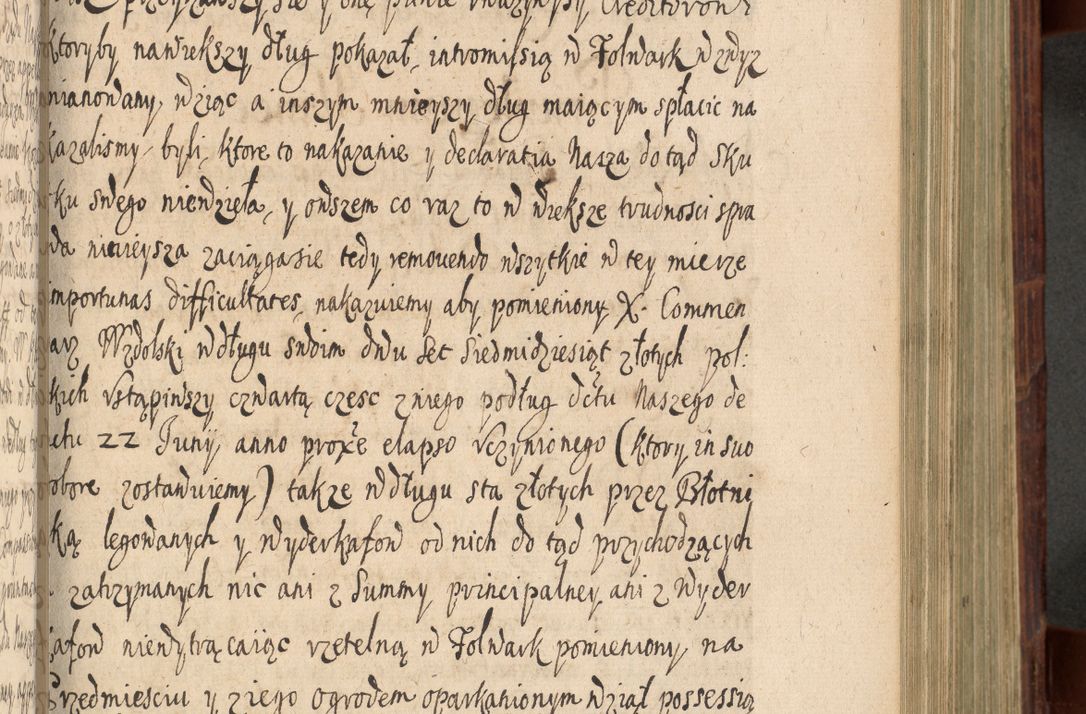 Creditorom
ktoryby nawiekszy dług pokazał, intromissią w Folwark wzwyz
mianowany, wziąc a inszym mnieyszy dług maiącym spłacic na
kazalismy byli, ktore to nakazanie y declaratia Nasza do tąd sku
tku swego niewzieła, y owszem co raz to w wieksze trudnosci spra
wa ninieysza zaciągasie tedy removendo wszytkie w tey mierze
importunas difficultates, nakazuiemy aby pomieniony X. Commen
arz Wzdolski w długu swoim dwu set siedmidziesiąt złotych pol:
kich Ustąpiwszy czwartą czesc z niego podług dctu Naszego de
ctu 22 Junij, anno proxe elapso Uczynionego (ktory in suo
obore zostawuiemy) takze w długu sta złotych przez Błotni
ką legowanych y wyderkafow od nich do tąd przychodzących
zatrzymanych nic ani z Summy principalney ani z Wyder
kafow niewytrącaiąc rzetelną w Folwark pomieniony, na
Przedmiesciu y z iego ogrodem oparkanionym wziął possessią